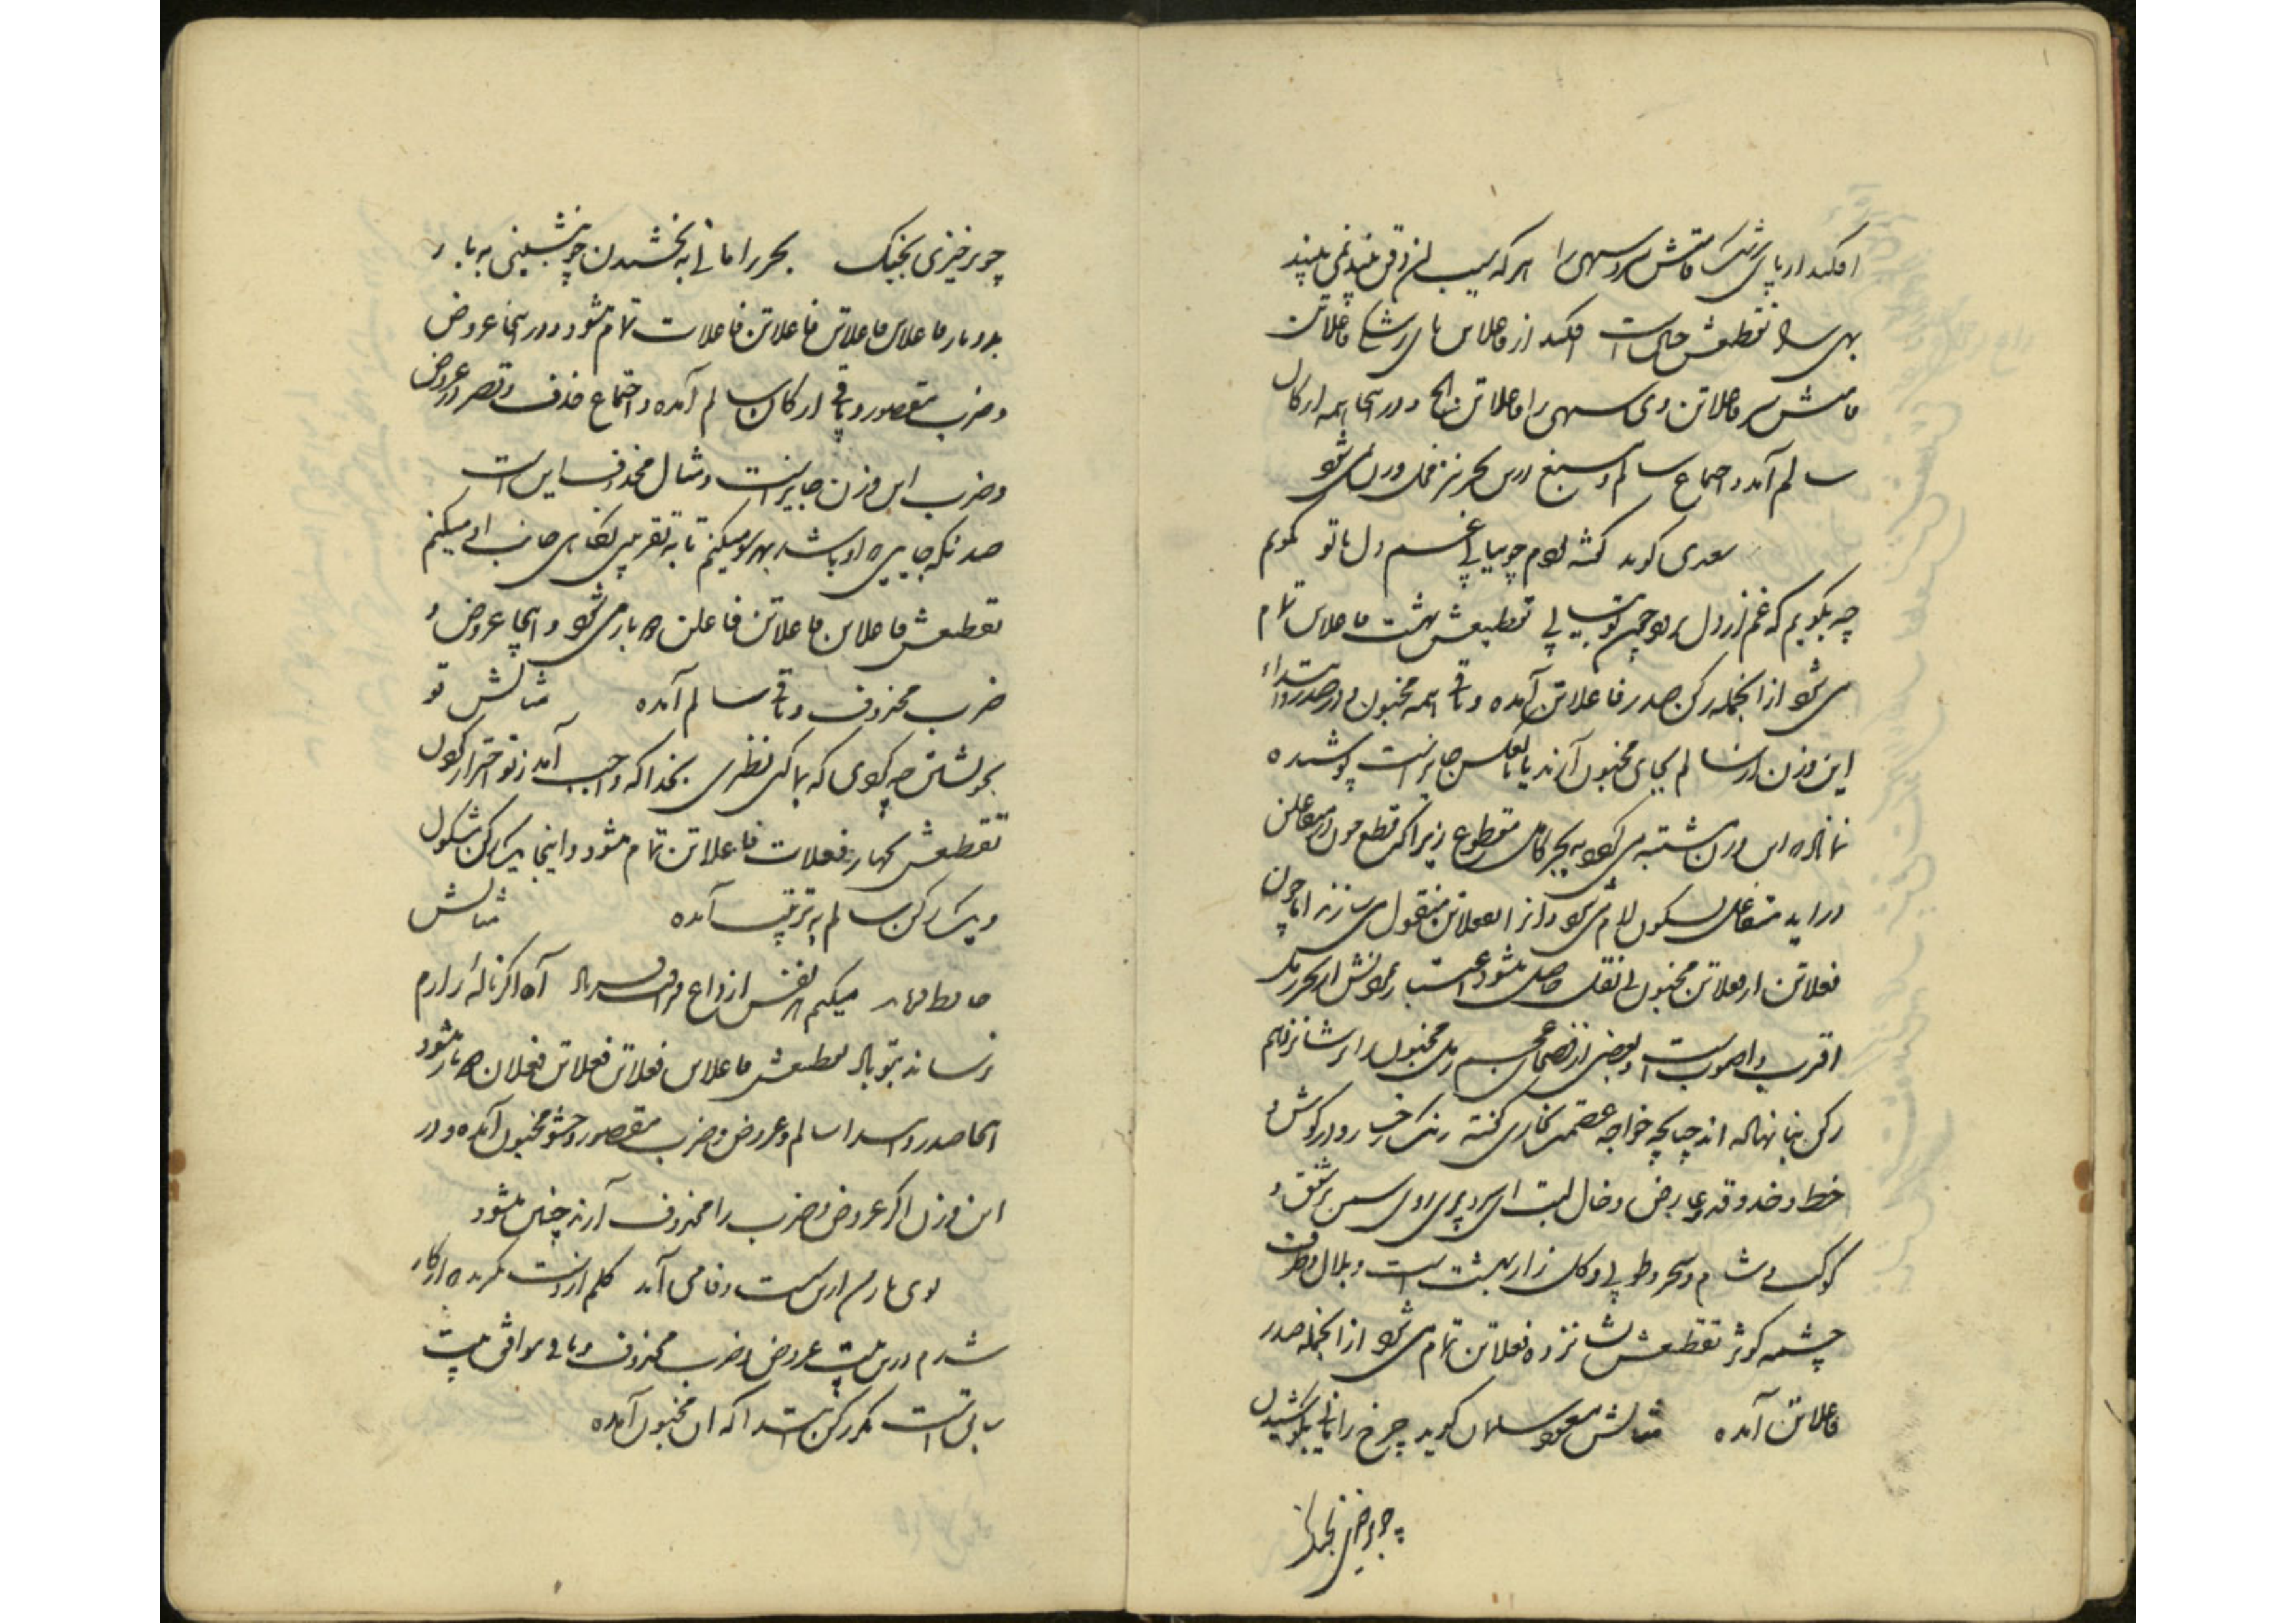 افکند از پای رشک قامتش سرو سهی را هر که سیب ذقن بیند نمی بیند
بهی را تقطیعش چنین است افکند از فاعلاتن پای رشکِ فاعلاتن
قامتش سر فاعلاتن وی سهی را فاعلاتن الخ و در اینجا همه ارکان
سالم آمده و اجتماع سالم و مسبغ درین بحر نیز مخل وزن نمی شود
سعدی گوید گفته بودم چو بیایی غم دل با تو بگویم
چه بگویم که غم از دل برود چون تو بیایی تقطیعش بهشت فاعلاتن تمام
می شود از آنجمله رکن صدر فاعلاتن آمده و باقی همه مخبون و در صدر و ابتداء
این وزن اگر سالم بجای مخبون آرند یا بالعکس جایز است پوشیده
نماند که این وزن مشتبه می شود به بحر کامل مقطوع زیرا که قطع چون در متفاعلن
در آید متفاعل بسکون لام می شود و آنرا بفعلاتن منقول می سازند اما چون
فعلاتن از فاعلاتن مخبون بی نقل حاصل میشود اعتبار نمودنش از بحر رمل
اقرب و اصوب است و بعضی از فصحای عجم رمل مخبون را بر شانزدهم
رکن بنا نهاده اند چنانچه خواجه عصمت بخاری گفته رنگ رخسار و در گوش و
خط و خد و قد و عارض و خال لبت ای سرو پری روی سمن بر شفق و
کوکب و شام و سحر و طوبی و گلزار بهشت است و بلال و طرف
چشمه کوثر تقطیعش شانزده فعلاتن تمام می شود از آنجمله صدر
فاعلاتن آمده مثالش مسعود سلمان گوید چرخ را مانی بکوشیدن
چو برخیزی بجنگ
چو برخیزی بجنگ بحر را مانی به بخشیدن چو بنشینی به بار
بدو بار فاعلاتن فاعلاتن فاعلاتن فاعلات تمام میشود و در اینجا عروض
و ضرب مقصور و باقی ارکان سالم آمده و اجتماع حذف و قصر در عروض
و ضرب این وزن جایز است و مثال محذوف این است
تقطیعش فاعلاتن فاعلاتن فاعلن دو بار می شود و اینجا عروض و
ضرب محذوف و باقی سالم آمده مثالش تو
بخویشتن چه کردی که بما کنی نظری بخدا که واجب آمد ز تو احتراز کردن
تقطیعش بچهار فعلات فاعلاتن تمام میشود و اینجا یک رکن مشکول
و یک رکن سالم به ترتیب آمده مثالش
میکنم هر نفس از داغ فراقت فریاد آه اگر نالهٔ زارم
نرساند بتو باد تقطیعش فاعلاتن فعلاتن فعلاتن فعلان دو بار میشود
اینجا صدر و ابتدا سالم و عروض و ضرب مقصور و حشو مخبون آمده و در
این وزن اگر عروض و ضرب را محذوف آرند چنین میشود
بوی یار من ازین سست وفا می آید گلم از دست بگیرید که از کار
شدم درین بیت عروض و ضرب محذوف و باقی موافق بیت
سابق است مگر رکن ابتدا که آن مخبون آمده